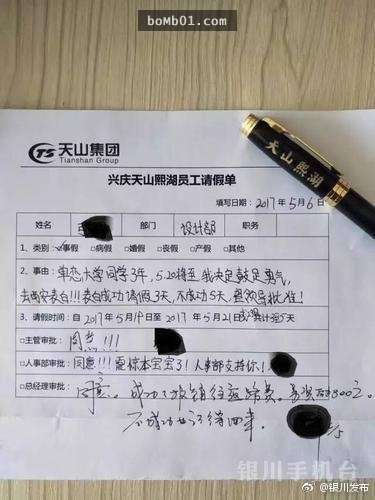 boMb01.com
天山集团
Tianshan Group
天山熙湖
兴庆天山熙湖员工请假单
填写日期：2017年5月6日
姓名 部门 设计部 职务
1、类别：✓事假 □病假 □婚假 □丧假 □产假 □其他
2、事由：单恋大学同学3年，5.20将至，我决定鼓足勇气，
去南京表白!!!表白成功请假3天，不成功5天，望领导批准！
3、请假时间：自2017年5月19日至2017年5月21日 共计 5天
□主管审批：同意!!!
□人事部审批：同意!!!震惊本宝宝了!人事部支持你!
□总经理审批：同意。成功了报销往返路费，奖励300元。
不成功也记得回来。
5/5
银川手机台
@银川发布